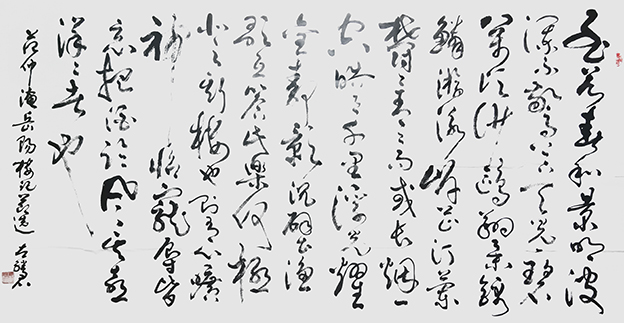 至若春和景明波
瀾不驚上下天光一碧
萬頃沙鷗翔集錦
鱗游泳岸芷汀蘭
郁郁青青而或長煙一
空皓月千里浮光耀
金靜影沉璧漁
歌互答此樂何極
登斯樓也則有心曠
神怡寵辱皆
忘把酒臨風其喜
洋洋者也
范仲淹岳陽樓記節選